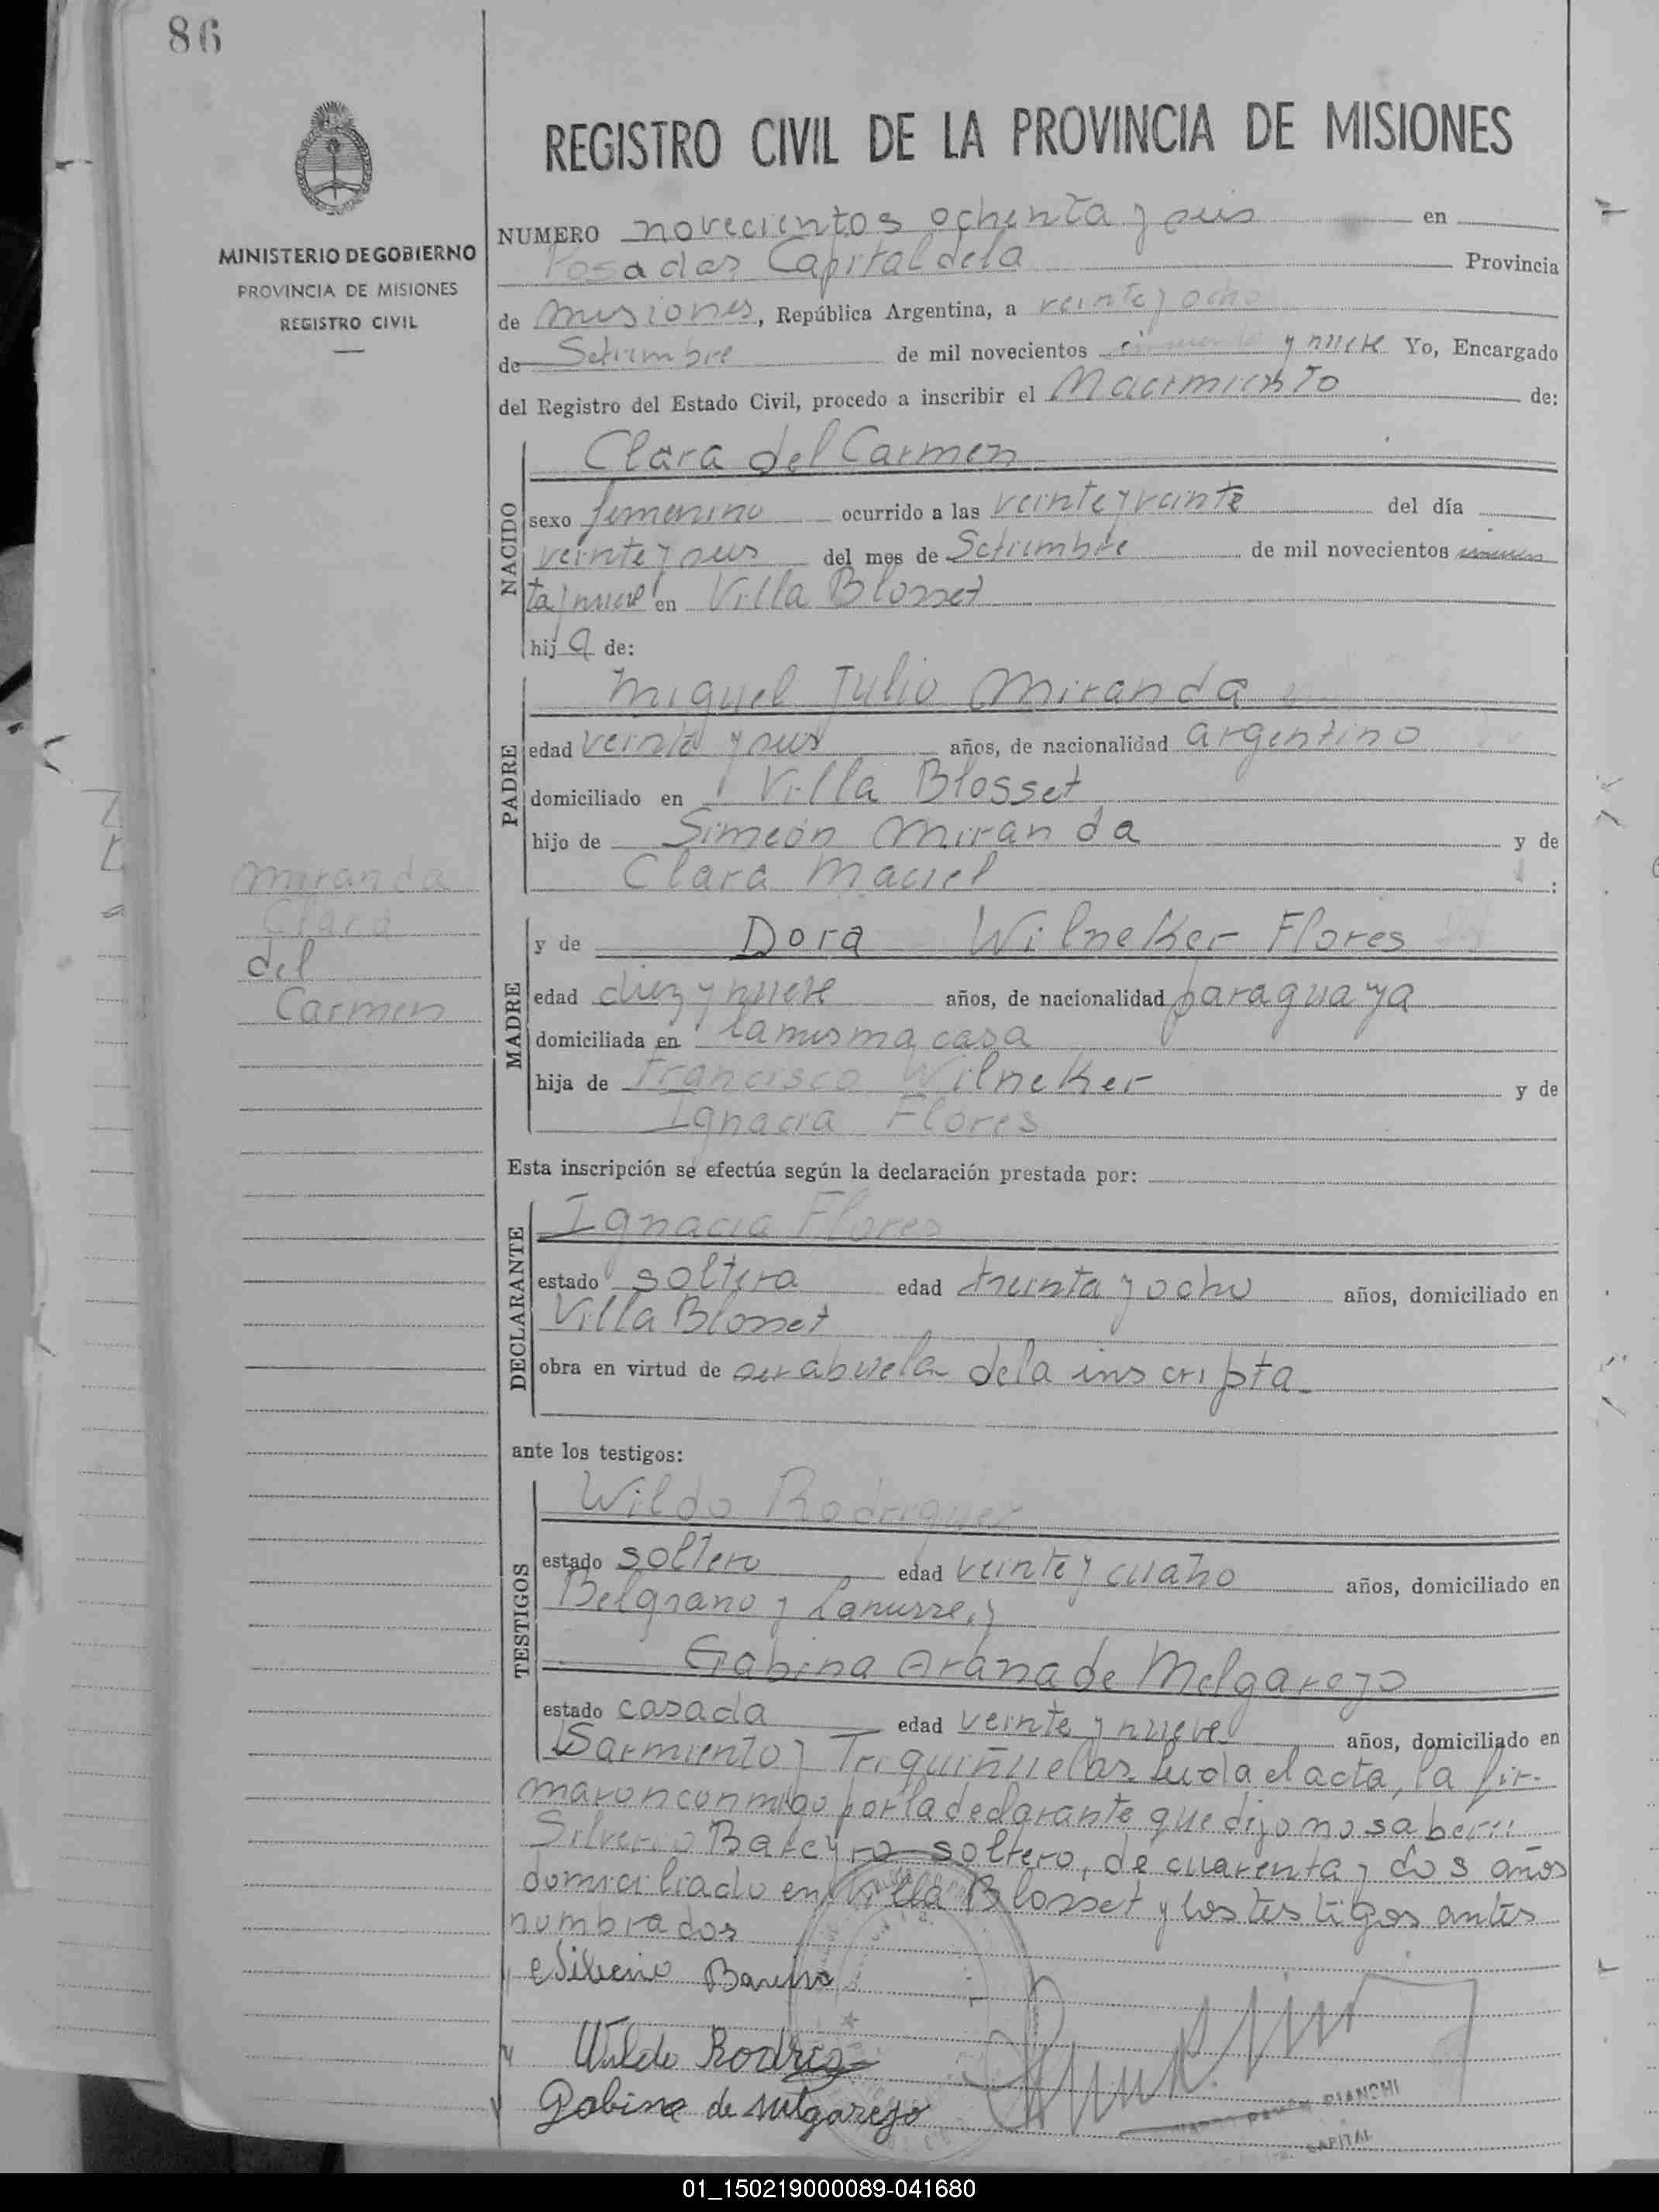 86
MINISTERIO DE GOBIERNO
PROVINCIA DE MISIONES
REGISTRO CIVIL
REGISTRO CIVIL DE LA PROVINCIA DE MISIONES
NUMERO novecientos ochenta y seis en
Posadas Capital de la Provincia
de Misiones, República Argentina, a veinte y ocho
de Setiembre de mil novecientos cincuenta y nueve Yo, Encargado
del Registro del Estado Civil, procedo a inscribir el Nacimiento de:
NACIDO
Clara del Carmen
sexo femenino ocurrido a las veinte y veinte del día
veinte y seis del mes de Setiembre de mil novecientos cincuen
ta y nueve en Villa Blosset
hija de:
PADRE
Miguel Julio Miranda
edad veinte y seis años, de nacionalidad argentino
domiciliado en Villa Blosset
hijo de Simeón Miranda y de
Clara Maciel :
Miranda
Clara
del
Carmen
MADRE
y de Dora Wilneker Flores
edad diez y nueve años, de nacionalidad paraguaya
domiciliada en la misma casa
hija de Francisco Wilneker y de
Ignacia Flores
Esta inscripción se efectúa según la declaración prestada por:
DECLARANTE
Ignacia Flores
estado soltera edad treinta y ocho años, domiciliado en
Villa Blosset
obra en virtud de ser abuela de la inscripta
ante los testigos:
TESTIGOS
Wildo Rodriguez
estado soltero edad veinte y cuatro años, domiciliado en
Belgrano y Lanusse, y
Gabina Arana de Melgarejo
estado casada edad veinte y nueve años, domiciliado en
Sarmiento y Triquiñuelas. Leida el acta, la fir-
maron conmigo por la declarante que dijo no saber:
Silverio Bareyro soltero, de cuarenta y dos años
domiciliado en Villa Blosset y los testigos antes
nombrados
Silverio Bareiro
Wildo Rodrig
Gabina de Melgarejo
RAMON BIANCHI
CAPITAL
01_150219000089-041680